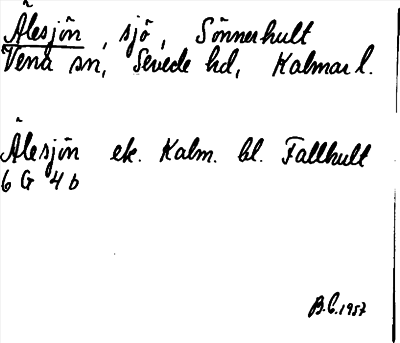 Ålesjön, sjö, Sönnerhult
Vena sn, Sevede hd, Kalmar l.
Ålesjön ek. Kalm. bl. Fallhult
6 G 4 b
B.C. 1957